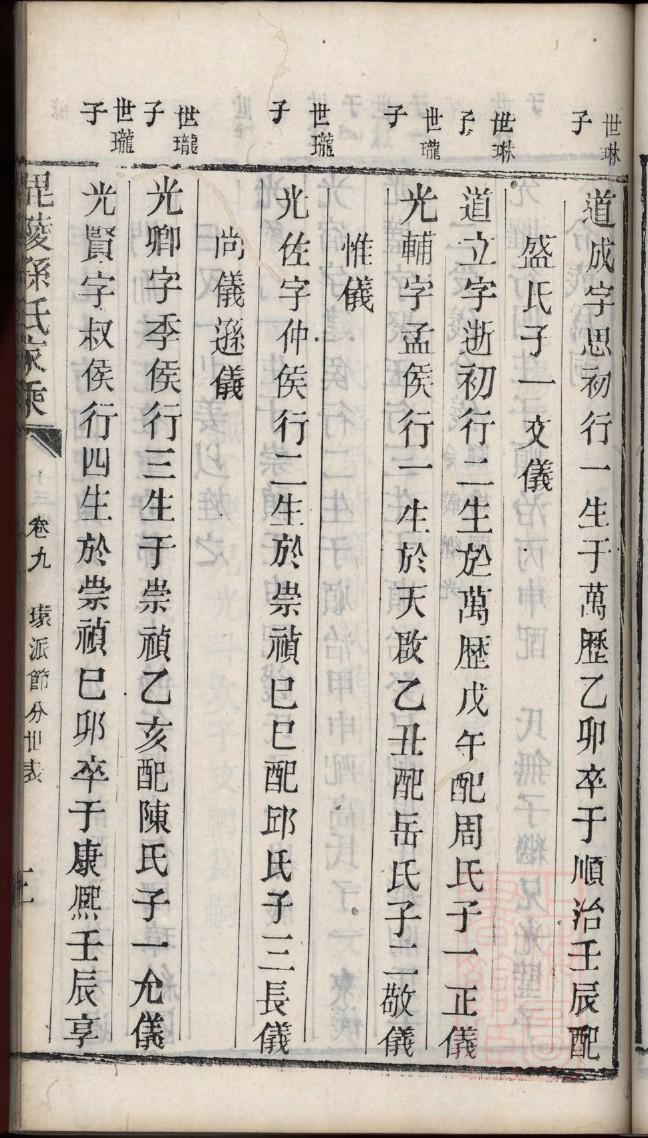 世琳子
道成字思初行一生于萬歷乙卯卒于順治壬辰配
盛氏子一文儀
世琳子
道立字逝初行二生於萬歷戊午配周氏子一正儀
世瓏子
光輔字孟侯行一生於天啟乙丑配岳氏子二敬儀
惟儀
世瓏子
光佐字仲侯行二生於崇禎己巳配邱氏子三長儀
尚儀遜儀
世瓏子
光卿字季侯行三生于崇禎乙亥配陳氏子一允儀
世瓏子
光賢字叔侯行四生於崇禎己卯卒于康熙壬辰享
毘陵孫氏家乘
卷九
派節分世表